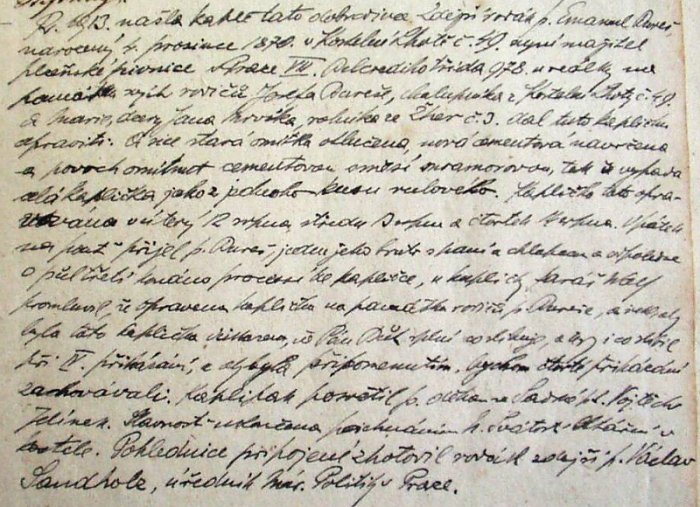 R. 1913. našla kaplička tato dobrodince. Zdejší rodák p. Emanuel Bureš
narozený 4. prosince 1870. v Kostelní Lhotě č. 49. nyní majitel
plzeňské pivnice v Praze VII. Belcrediho třída 978. u reálky na
památku svých rodičů Josefa Bureše, chalupníka z Kostelní Lhoty č. 49
a Marie, dcery Jana Mrvíka, rolníka ze Žher č. 3. dal tuto kapličku
opraviti. A sice stará omítka otlučena, nová cementová navržena
a povrch omítnut cementovou směsí mramorovou, tak že vypadá
celá kaplička jako z jednoho kusu rulového. Kaplička tato opra-
vována v úterý 12 srpna, středu 13 srpna a čtvrtek 14 srpna. V pátek
na pouť přijel p. Bureš, jeden jeho bratr s paní a chlapcem a odpoledne
o půl třetí konáno procesí ke kapličce, u kapličky farář
promluvil, že opravena kaplička na památku rodičů p. Bureše, a
byla tato kaplička důkazem, že Pán Bůh plní co slibuje, a
při IV. přikázání, a aby byla připomenutím, bychom čtvrté přikázání
zachovávali. Kapli pak posvětil p. děkan ze Sadské p. Vojtěch
Jelínek. Slavnost ukončena požehnáním N. Svátosti Oltářní v
kostele. Pohlednice připojené zhotovil rodák zdejší p. Václav
Sandholz, úředník Nár. Politiky v Praze.